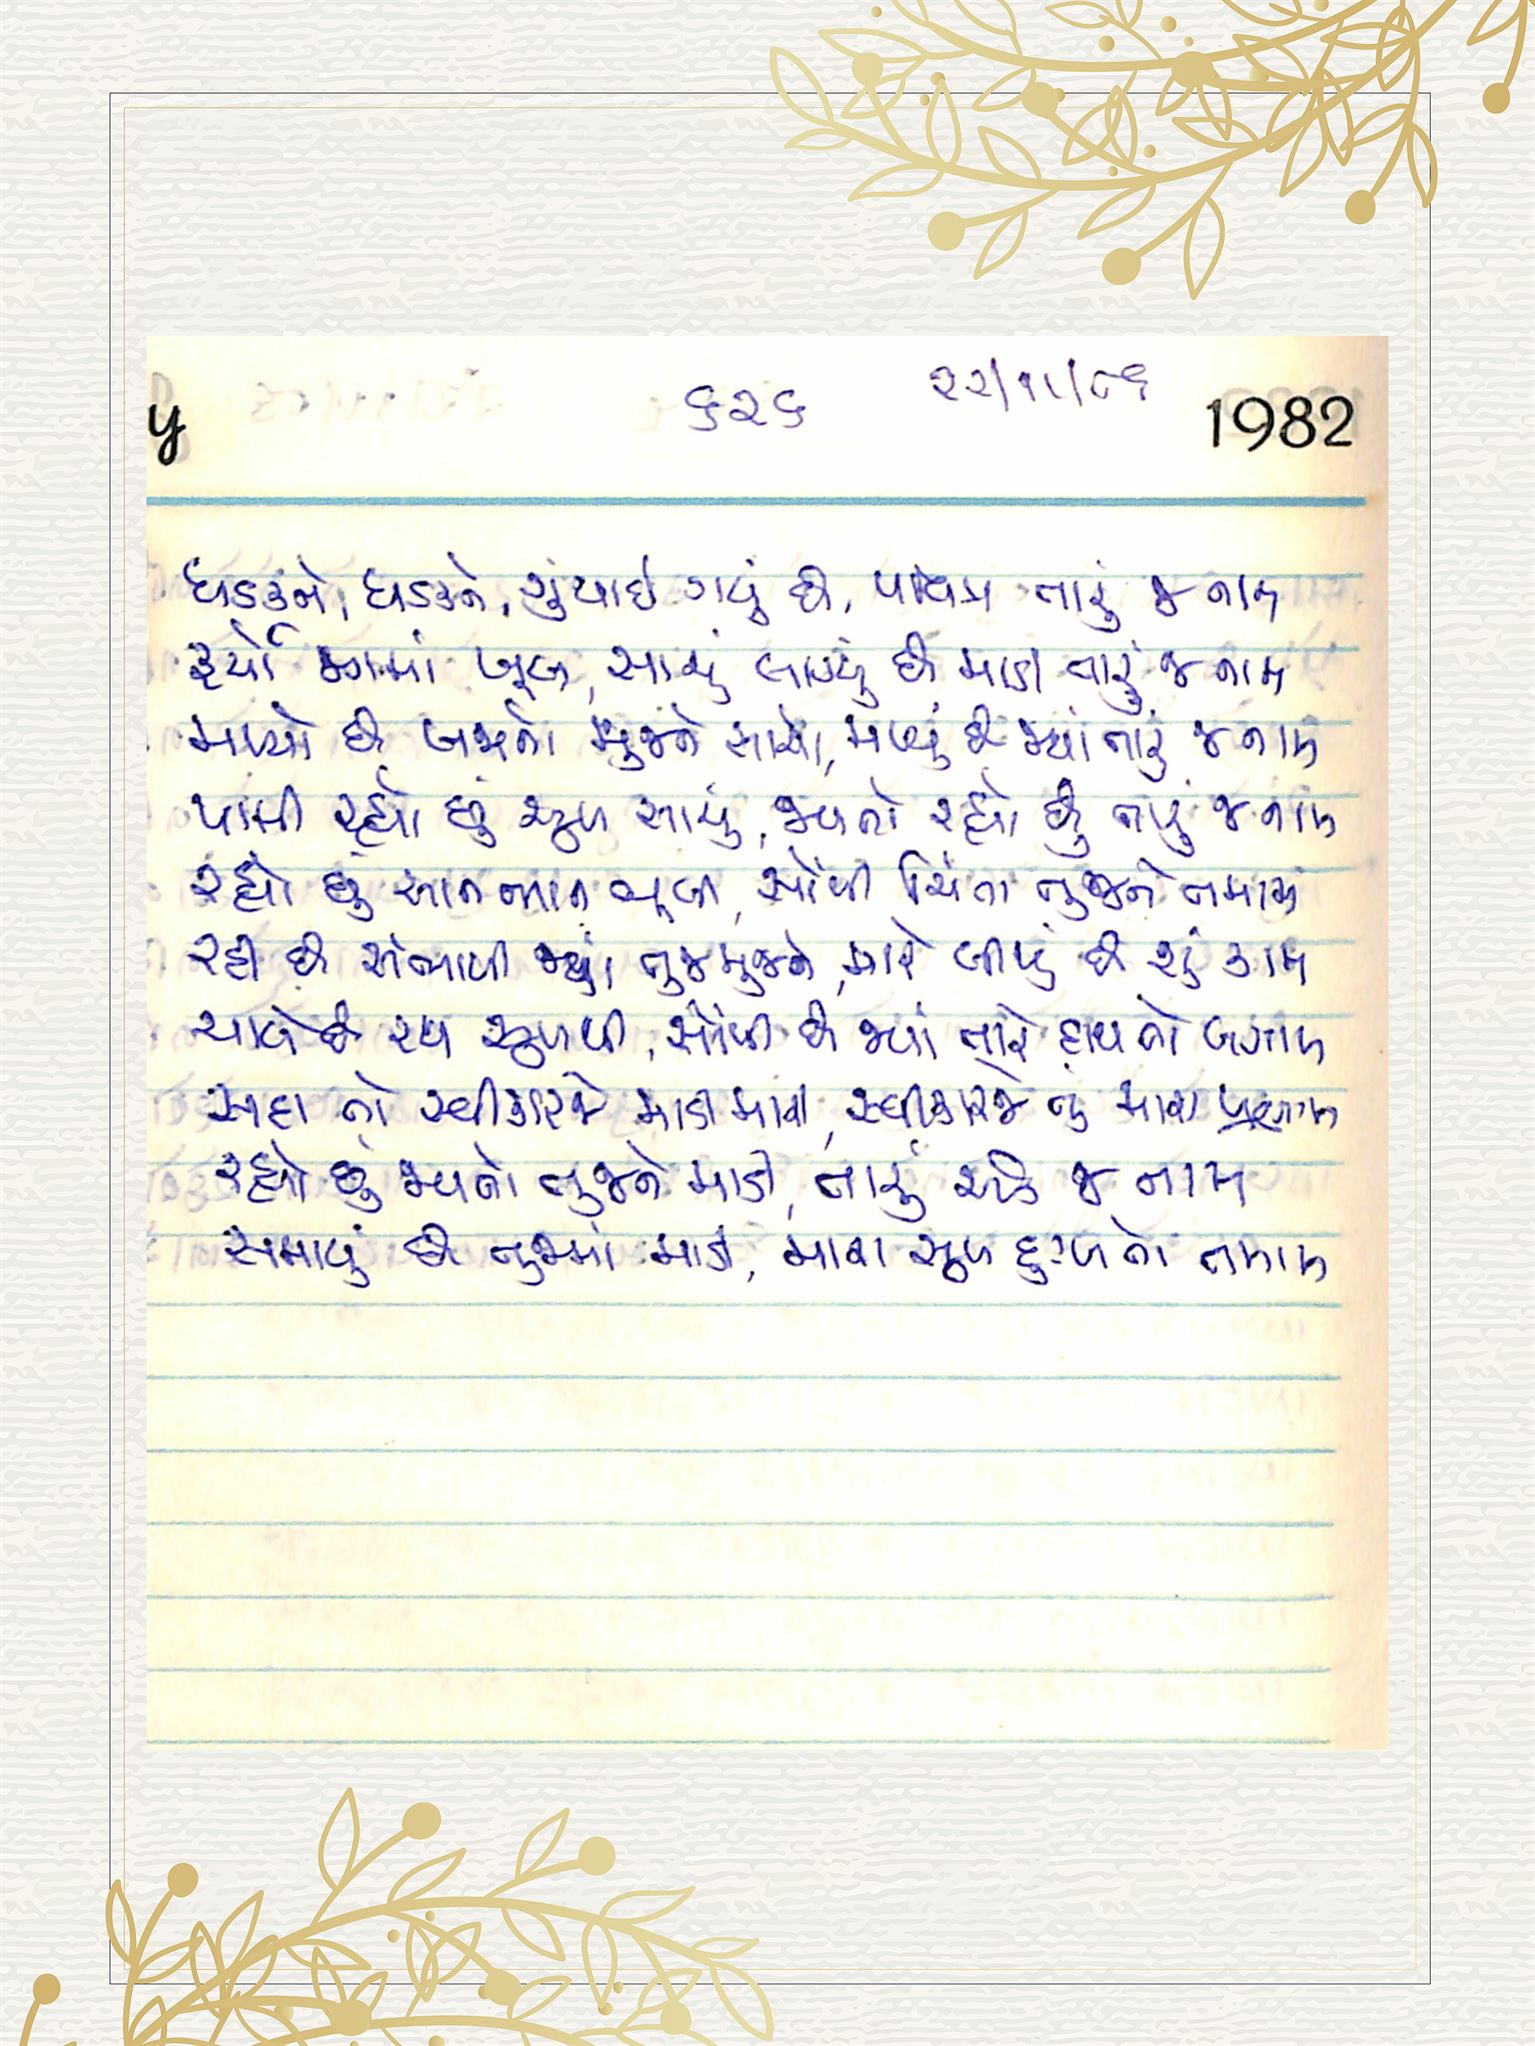 y ૬૨૬ ૨૨/૧૧/૮૬ 1982
ધડકને, ધડકને, ગુંથાઇ ગયું છે, પવિત્ર તારું જ નામ
ફર્યો જગમાં ખૂબ, સાચું લાગ્યું છે માડી તારું જ નામ
મળ્યો છે ખજાનો મુજને સાચો, મળ્યું છે જ્યાં તારું જ નામ
પામી રહ્યો છું સુખ સાચું, જપતો રહ્યો છું તારું જ નામ
રહ્યો છું ભાન ભૂલી, સોંપી ચિંતા તુજને તમામ
રહી છે સંભાળી જ્યાં તુજ મુજને, મારે બીજું છે શું કામ
ચાલે છે રથ સુખથી, સોંપી છે જ્યાં તારે હાથ તો લગામ
સદા તો સ્વીકારજે માડી મારા, સ્વીકારજે તું મારા પ્રણામ
રહ્યો છું જપતો તુજને માડી, તારું એક જ નામ
સમાયું છે તુજમાં માડી, મારા સુખ દુઃખ તો તમામ